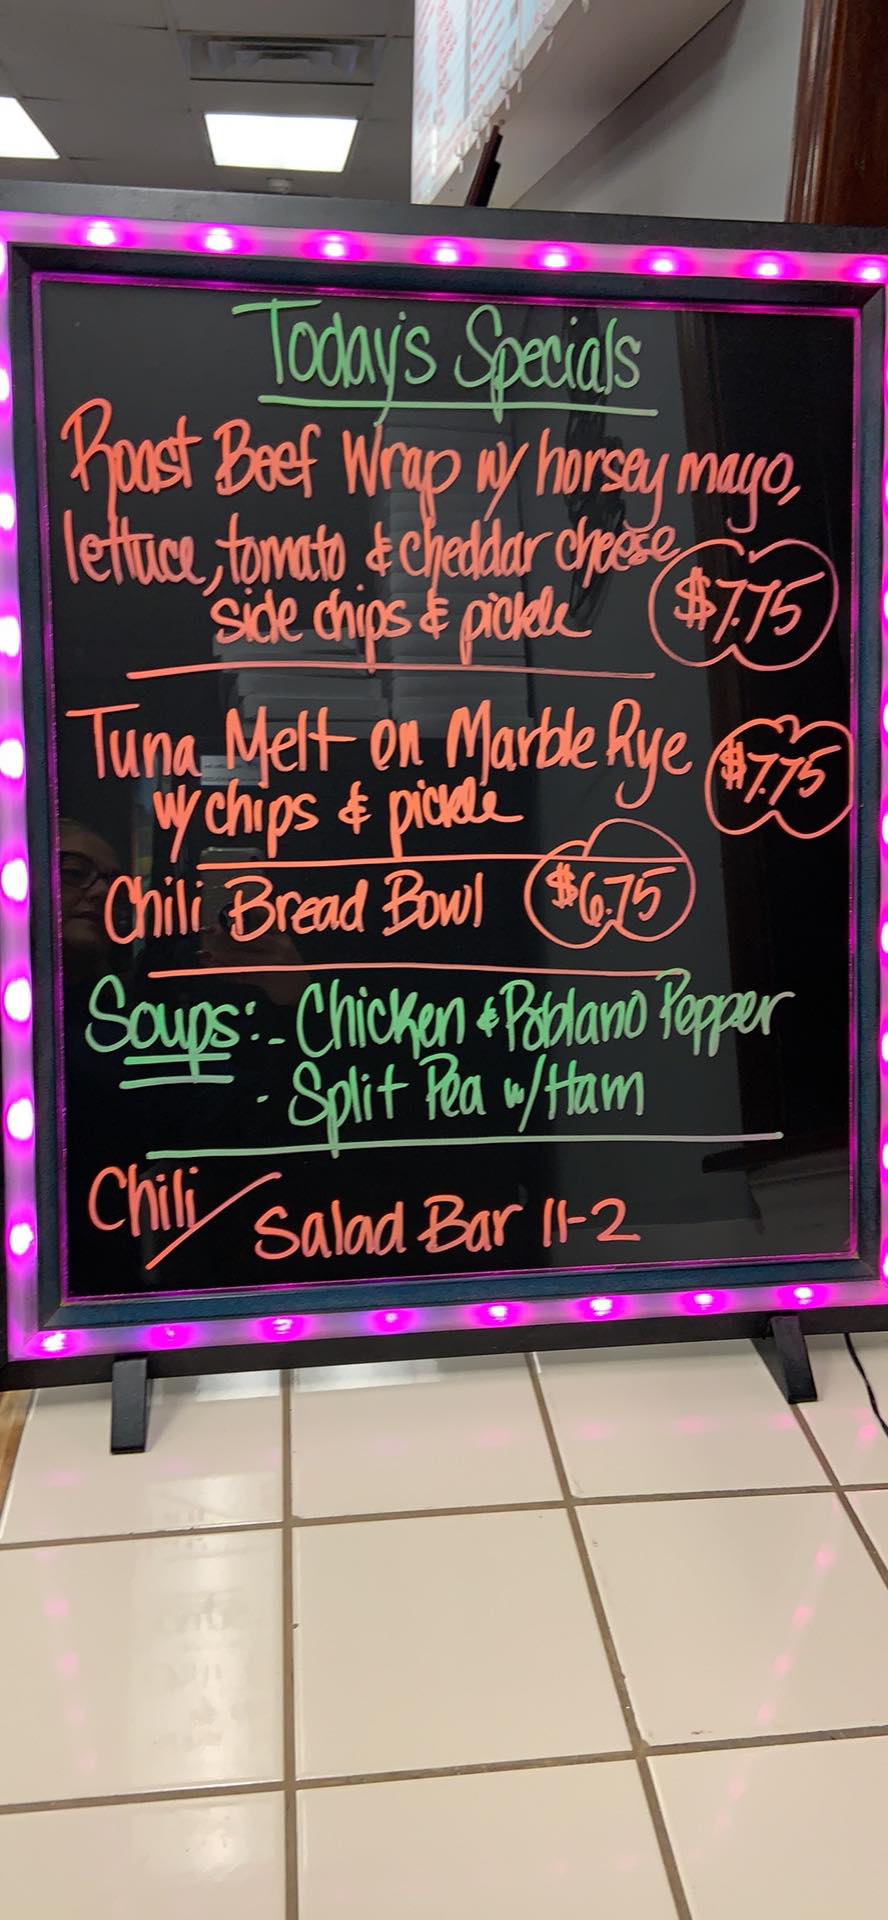 Today's Specials
Roast Beef Wrap w/ horsey mayo,
lettuce, tomato & cheddar cheese
side chips & pickle $7.75
Tuna Melt on Marble Rye $7.75
w/ chips & pickle
Chili Bread Bowl $6.75
Soups: - Chicken & Poblano Pepper
- Split Pea w/ Ham
Chili / Salad Bar 11-2